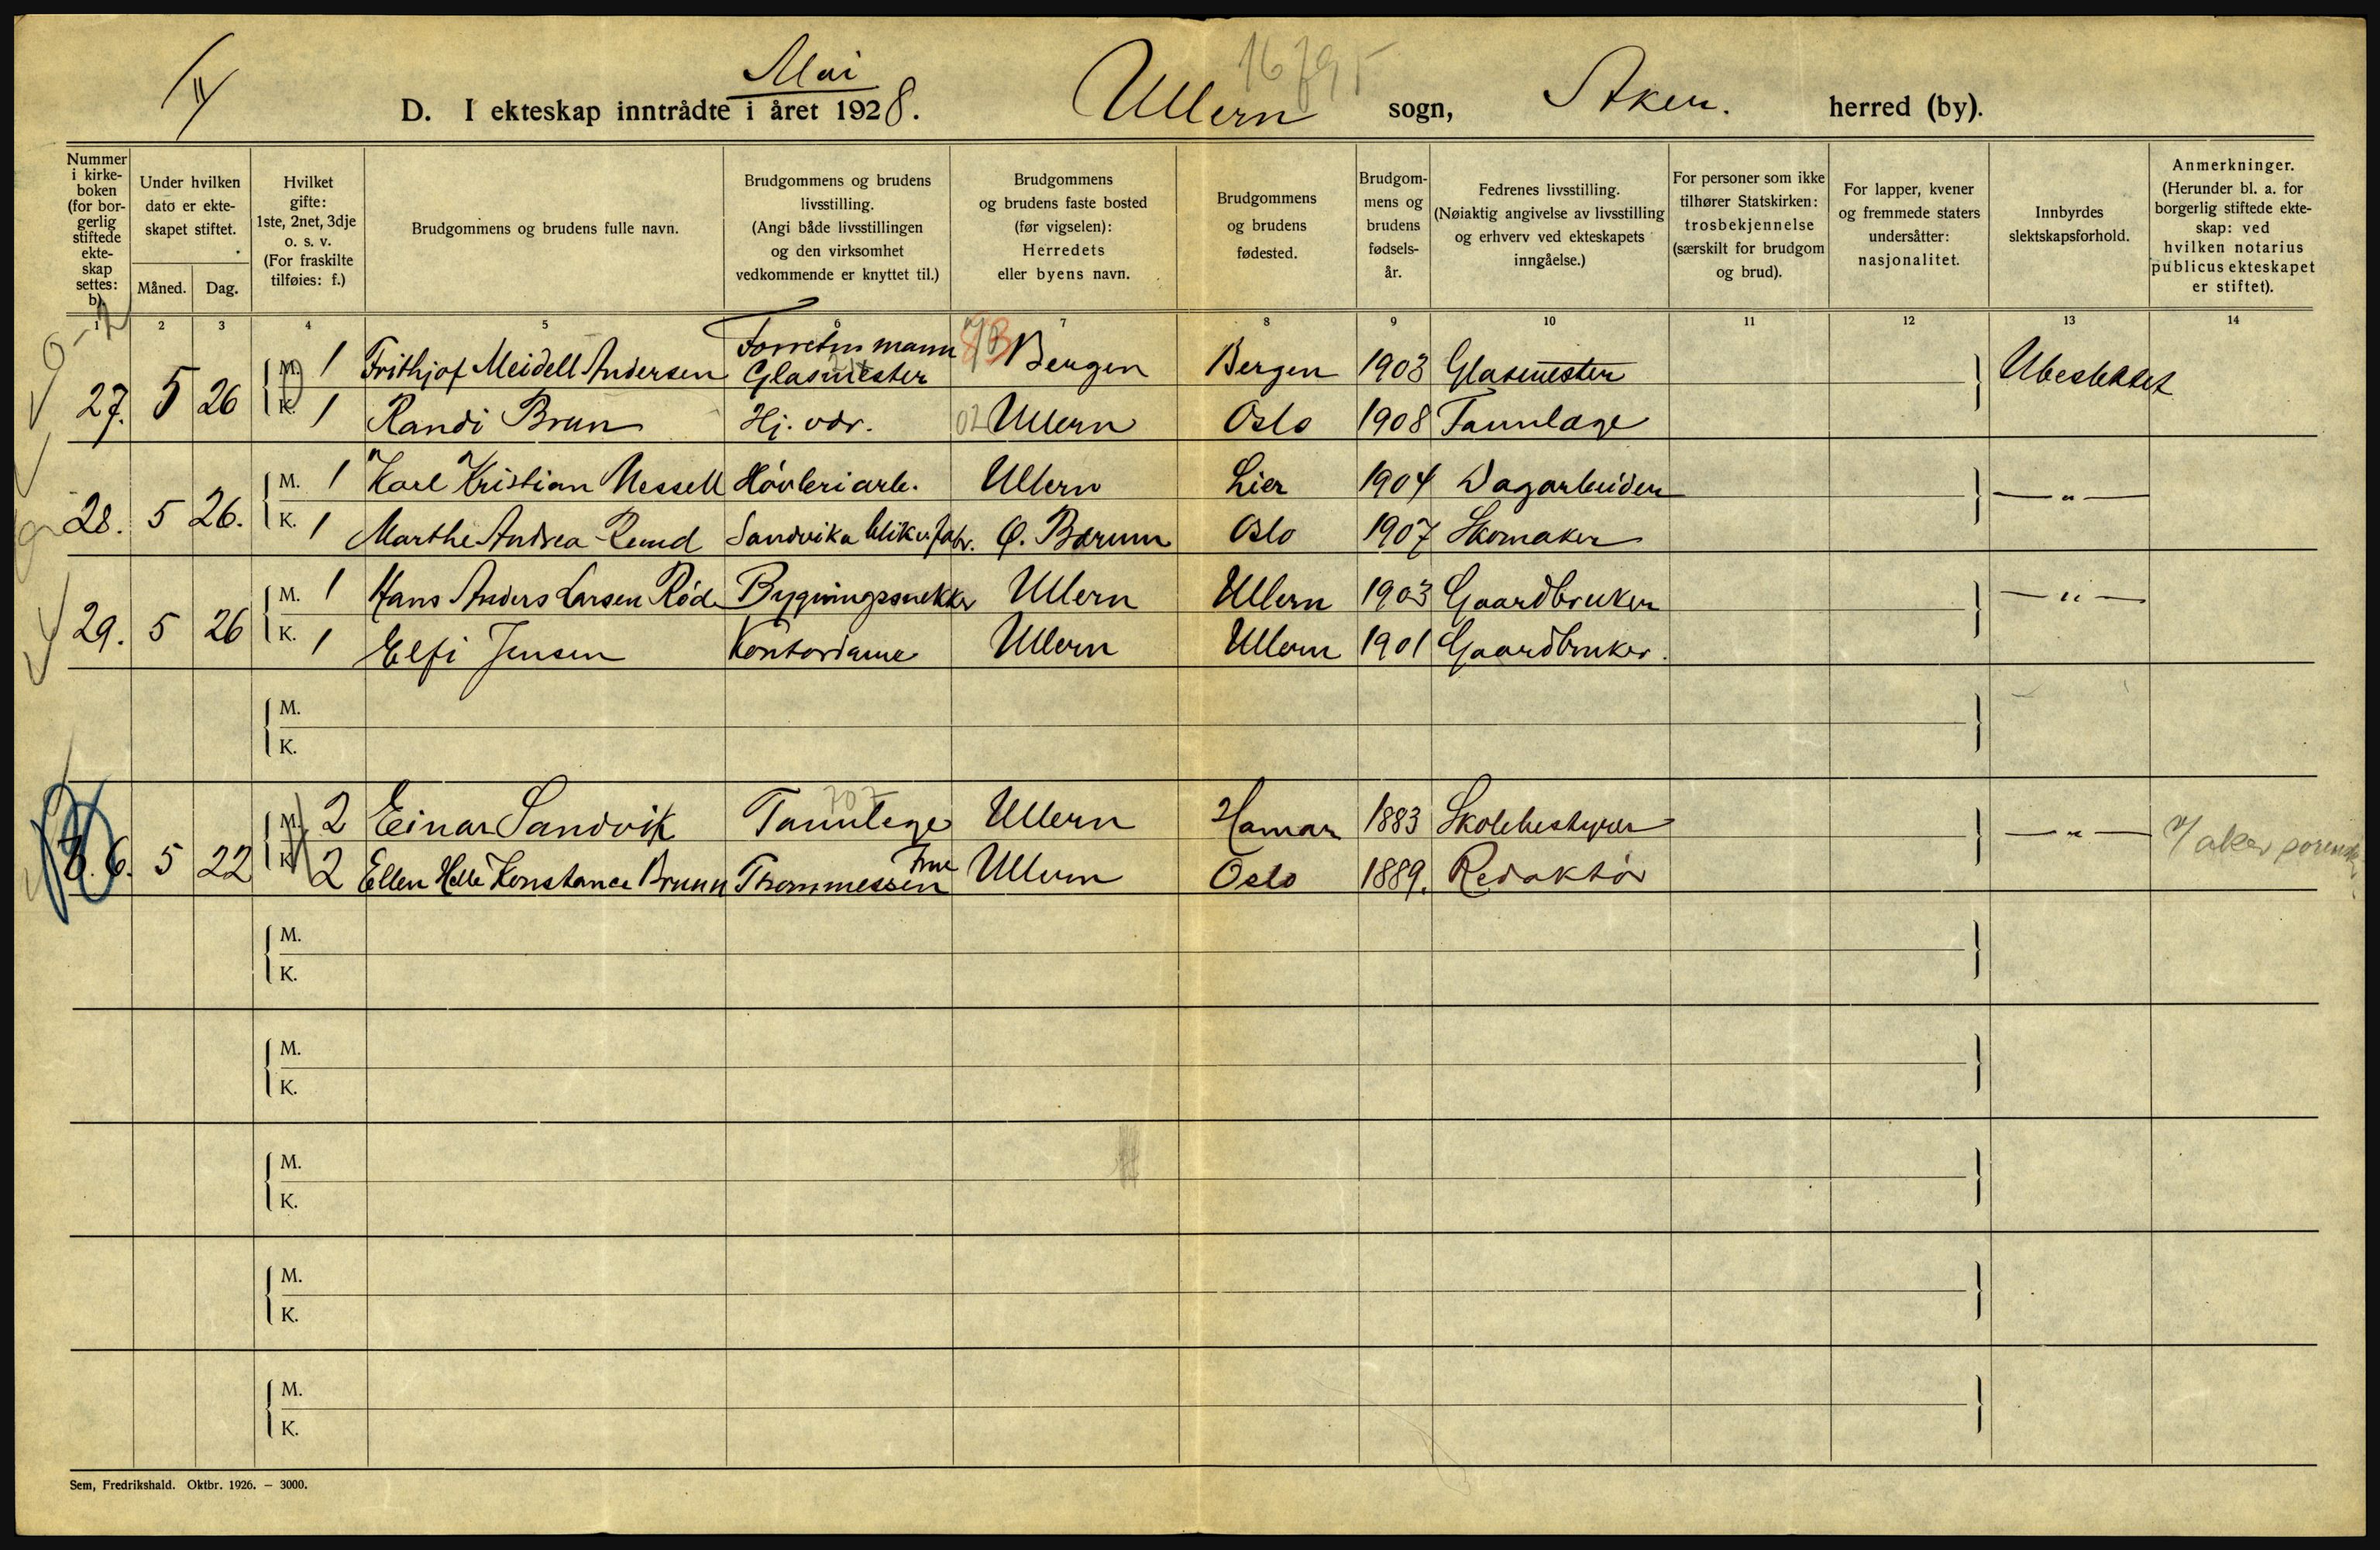 Mai
16795
D. I ekteskap inntrådte i året 1928. Ullern sogn, Aker. herred (by).
Nummer i kirke-boken (for bor-gerlig stiftede ekte-skap settes: b).
Under hvilken dato er ekte-skapet stiftet.
Måned. Dag.
Hvilket gifte: 1ste, 2net, 3dje o. s. v. (For fraskilte tilføies: f.)
Brudgommens og brudens fulle navn.
Brudgommens og brudens livsstilling. (Angi både livsstillingen og den virksomhet vedkommende er knyttet til.)
Brudgommens og brudens faste bosted (før vigselen): Herredets eller byens navn.
Brudgommens og brudens fødested.
Brudgom-mens og brudens fødsels-år.
Fedrenes livsstilling. (Nøiaktig angivelse av livsstilling og erhverv ved ekteskapets inngåelse.)
For personer som ikke tilhører Statskirken: trosbekjennelse (særskilt for brudgom og brud).
For lapper, kvener og fremmede staters undersåtter: nasjonalitet.
Innbyrdes slektskapsforhold.
Anmerkninger. (Herunder bl. a. for borgerlig stiftede ekte-skap: ved hvilken notarius publicus ekteskapet er stiftet).
1 2 3 4 5 6 7 8 9 10 11 12 13 14
27. 5 26 M. 1 Frithjof Meidell Andersen Forretnmann Glasmester Bergen Bergen 1903 Glasmester Ubeslektet
K. 1 Randi Brun Hj. vdr. 02 Ullern Oslo 1908 Tannlæge
28. 5 26. M. 1 Karl Kristian Nessell Høvleriarb. Ullern Lier 1904 Dagarbeider — " —
K. 1 Marthe Andrea Rund Sandvika blikv.fabr. Ø. Bærum Oslo 1907 Skomaker
29. 5 26 M. 1 Hans Anders Larsen Röd Bygningssnekker Ullern Ullern 1903 Gaardbruker — " —
K. 1 Elfi Jensen Kontordame Ullern Ullern 1901 Gaardbruker.
M.
K.
B. 6. 5 22 M. 2 Einar Sandvik 707 Tannlege Ullern Hamar 1883 Skolebestyrer — " —
K. 2 Ellen Helle Konstance Brunn Thommessen Frue Ullern Oslo 1889. Redaktør
M.
K.
M.
K.
M.
K.
M.
K.
M.
K.
Sem, Fredrikshald. Oktbr. 1926. – 3000.